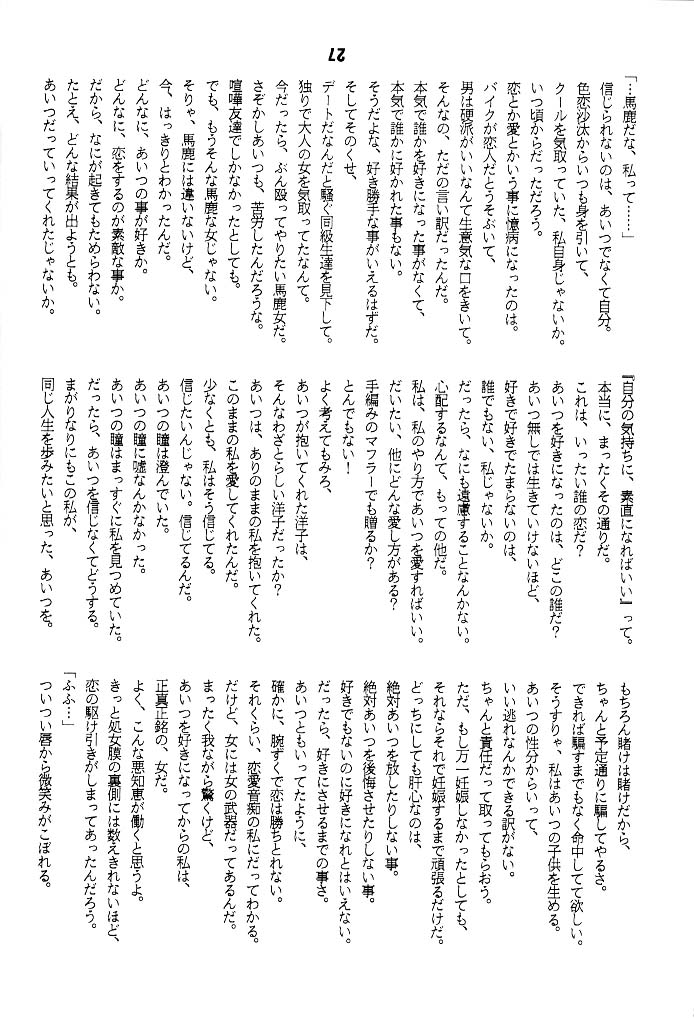 27
「…馬鹿だな、私って……」
信じられないのは、あいつでなくて自分。
色恋沙汰からいつも身を引いて、
クールを気取っていた、私自身じゃないか。
いつ頃からだっただろう。
恋とか愛とかいう事に憶病になったのは。
バイクが恋人だとうそぶいて、
男は硬派がいいなんて生意気な口をきいて。
そんなの、ただの言い訳だったんだ。
本気で誰かを好きになった事がなくて、
本気で誰かに好かれた事もない。
そうだよな、好き勝手な事がいえるはずだ。
そしてそのくせ、
デートだなんだと騒ぐ同級生達を見下して。
独りで大人の女を気取ってたなんて。
今だったら、ぶん殴ってやりたい馬鹿女だ。
さぞかしあいつも、苦労したんだろうな。
喧嘩友達でしかなかったとしても。
でも、もうそんな馬鹿な女じゃない。
そりゃ、馬鹿には違いないけど、
今、はっきりとわかったんだ。
どんなに、あいつの事が好きか。
どんなに、恋をするのが素敵な事か。
だから、なにが起きてもためらわない。
たとえ、どんな結果が出ようとも。
あいつだっていってくれたじゃないか。
『自分の気持ちに、素直になればいい』って。
本当に、まったくその通りだ。
これは、いったい誰の恋だ？
あいつを好きになったのは、どこの誰だ？
あいつ無しでは生きていけないほど、
好きで好きでたまらないのは、
誰でもない、私じゃないか。
だったら、なにも遠慮することなんかない。
心配するなんて、もっての他だ。
私は、私のやり方であいつを愛すればいい。
だいたい、他にどんな愛し方がある？
手編みのマフラーでも贈るか？
とんでもない！
よく考えてもみろ、
あいつが抱いてくれた洋子は、
そんなわざとらしい洋子だったか？
あいつは、ありのままの私を抱いてくれた。
このままの私を愛してくれたんだ。
少なくとも、私はそう信じてる。
信じたいんじゃない。信じてるんだ。
あいつの瞳は澄んでいた。
あいつの瞳に嘘なんかなかった。
あいつの瞳はまっすぐに私を見つめていた。
だったら、あいつを信じなくてどうする。
まがりなりにもこの私が、
同じ人生を歩みたいと思った、あいつを。
もちろん賭けは賭けだから、
ちゃんと予定通りに騙してやるさ。
できれば騙すまでもなく命中してて欲しい。
そうすりゃ、私はあいつの子供を生める。
あいつの性分からいって、
いい逃れなんかできる訳がない。
ちゃんと責任だって取ってもらおう。
ただ、もし万一妊娠しなかったとしても、
それならそれで妊娠するまで頑張るだけだ。
どっちにしても肝心なのは、
絶対あいつを放したりしない事。
絶対あいつを後悔させたりしない事。
好きでもないのに好きになれとはいえない。
だったら、好きにさせるまでの事さ。
あいつともいってたように、
確かに、腕ずくで恋は勝ちとれない。
それくらい、恋愛音痴の私にだってわかる。
だけど、女には女の武器だってあるんだ。
まったく我ながら驚くけど、
あいつを好きになってからの私は、
正真正銘の、女だ。
よく、こんな悪知恵が働くと思うよ。
きっと処女膜の裏側には数えきれないほど、
恋の駆け引きがしまってあったんだろう。
「ふふ…」
ついつい唇から微笑みがこぼれる。